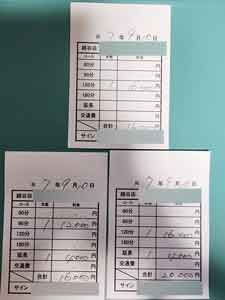 月 7 年 9 月 10 日
越谷店
コース 本数 対価
60分 円
90分 円
120分 1 16,000 円
180分 円
延長 円
交通費 円
合計 円
サイン
月 7 年 9 月 10 日
越谷店
コース 本数 対価
60分 円
90分 1 12,000 円
120分 円
180分 円
延長 1 4,000 円
交通費 円
合計 16,000 円
サイン
7 年 9 月 10 日
越谷店
コース 本数
60分 円
90分 円
120分 1 16,000 円
180分 円
延長 1 4,000 円
交通費 円
合計 20,000 円
サイン